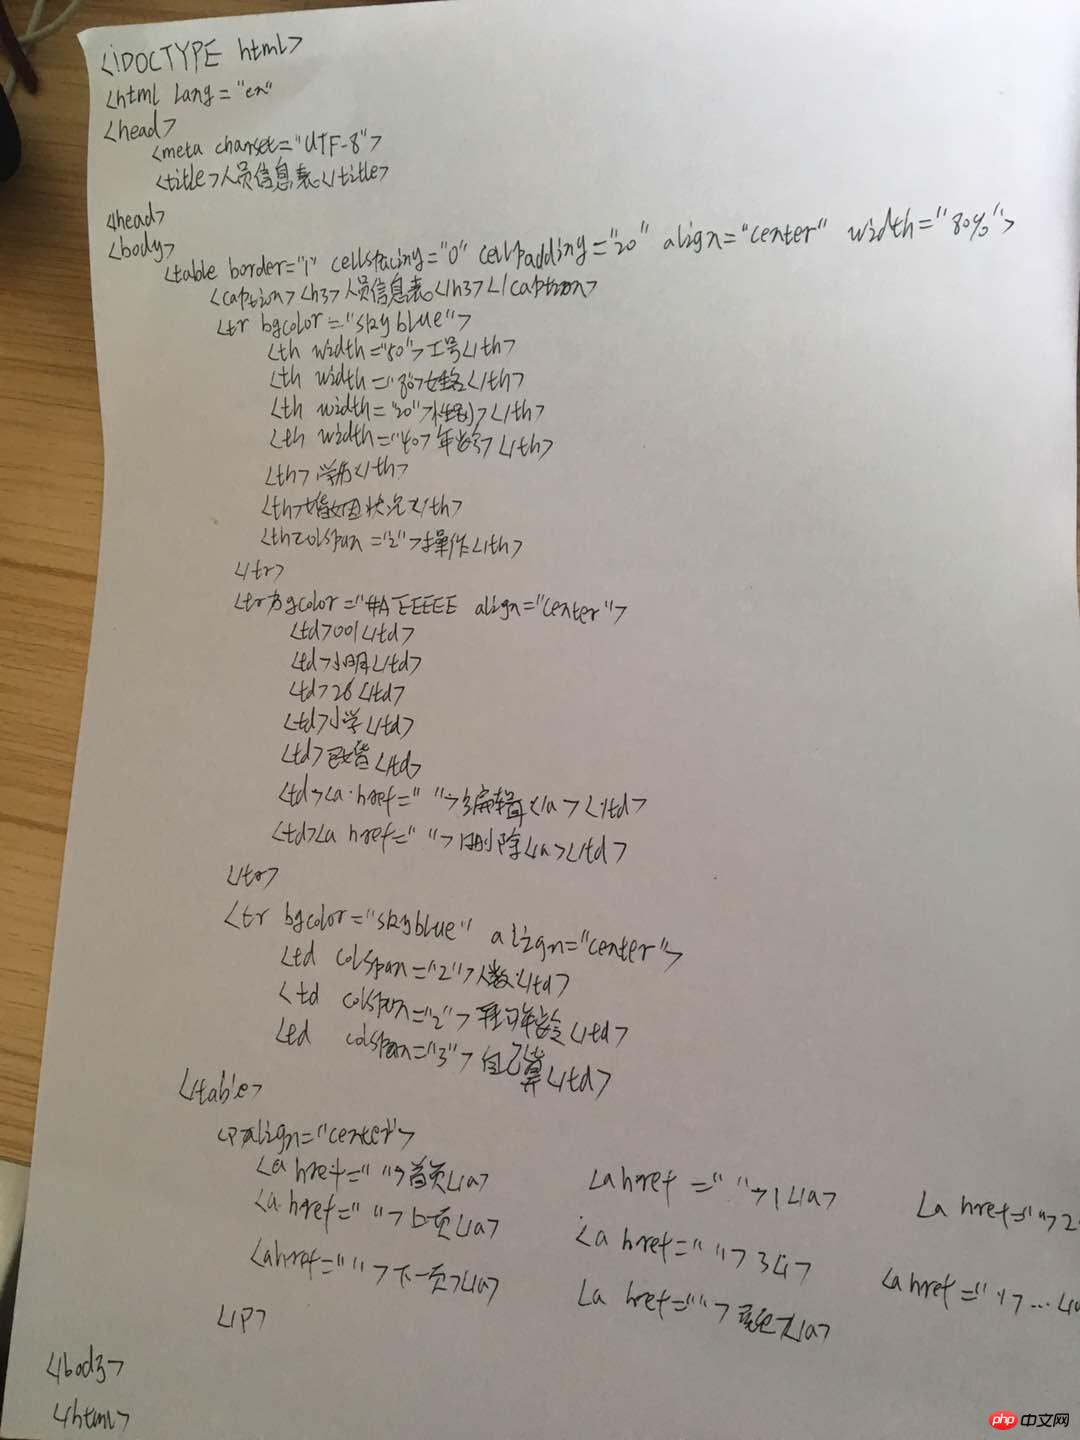 <!DOCTYPE html>
<html lang="en"
<head>
<meta charset="UTF-8">
<title>人员信息表</title>
</head>
<body>
<table border="1" cellspacing="0" cellpadding="20" align="center" width="80%">
<caption><h3>人员信息表</h3></caption>
<tr bgcolor="skyblue">
<th width="50">工号</th>
<th width="80>姓名</th>
<th width="20">性别</th>
<th width="40>年龄</th>
<th>学历</th>
<th>婚姻状况</th>
<th colspan="2">操作</th>
</tr>
<tr bgcolor="#AEEEEE align="center">
<td>001</td>
<td>小明</td>
<td>26</td>
<td>小学</td>
<td>已婚</td>
<td><a href=" ">编辑</a></td>
<td><a href=" ">删除</a></td>
</tr>
<tr bgcolor="skyblue" align="center">
<td colspan="2">人数:</td>
<td colspan="2">平均年龄</td>
<td colspan="3">自己算</td>
</table>
<p align="center">
<a href=" ">首页</a> <a href=" ">1</a> <a href=" ">2
<a href=" ">上一页</a> <a href=" ">3</> <a href=" ">...</a
<a href=" ">下一页</a> <a href=""></a>
</p>
</body>
</html>
php 中文网